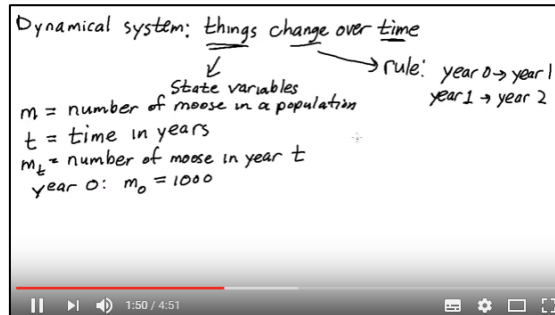 Dynamical system: things change over time
rule: year 0 → year 1
year 1 → year 2
State variables
m = number of moose in a population
t = time in years
m_t = number of moose in year t
year 0: m_0 = 1000
1:50 / 4:51